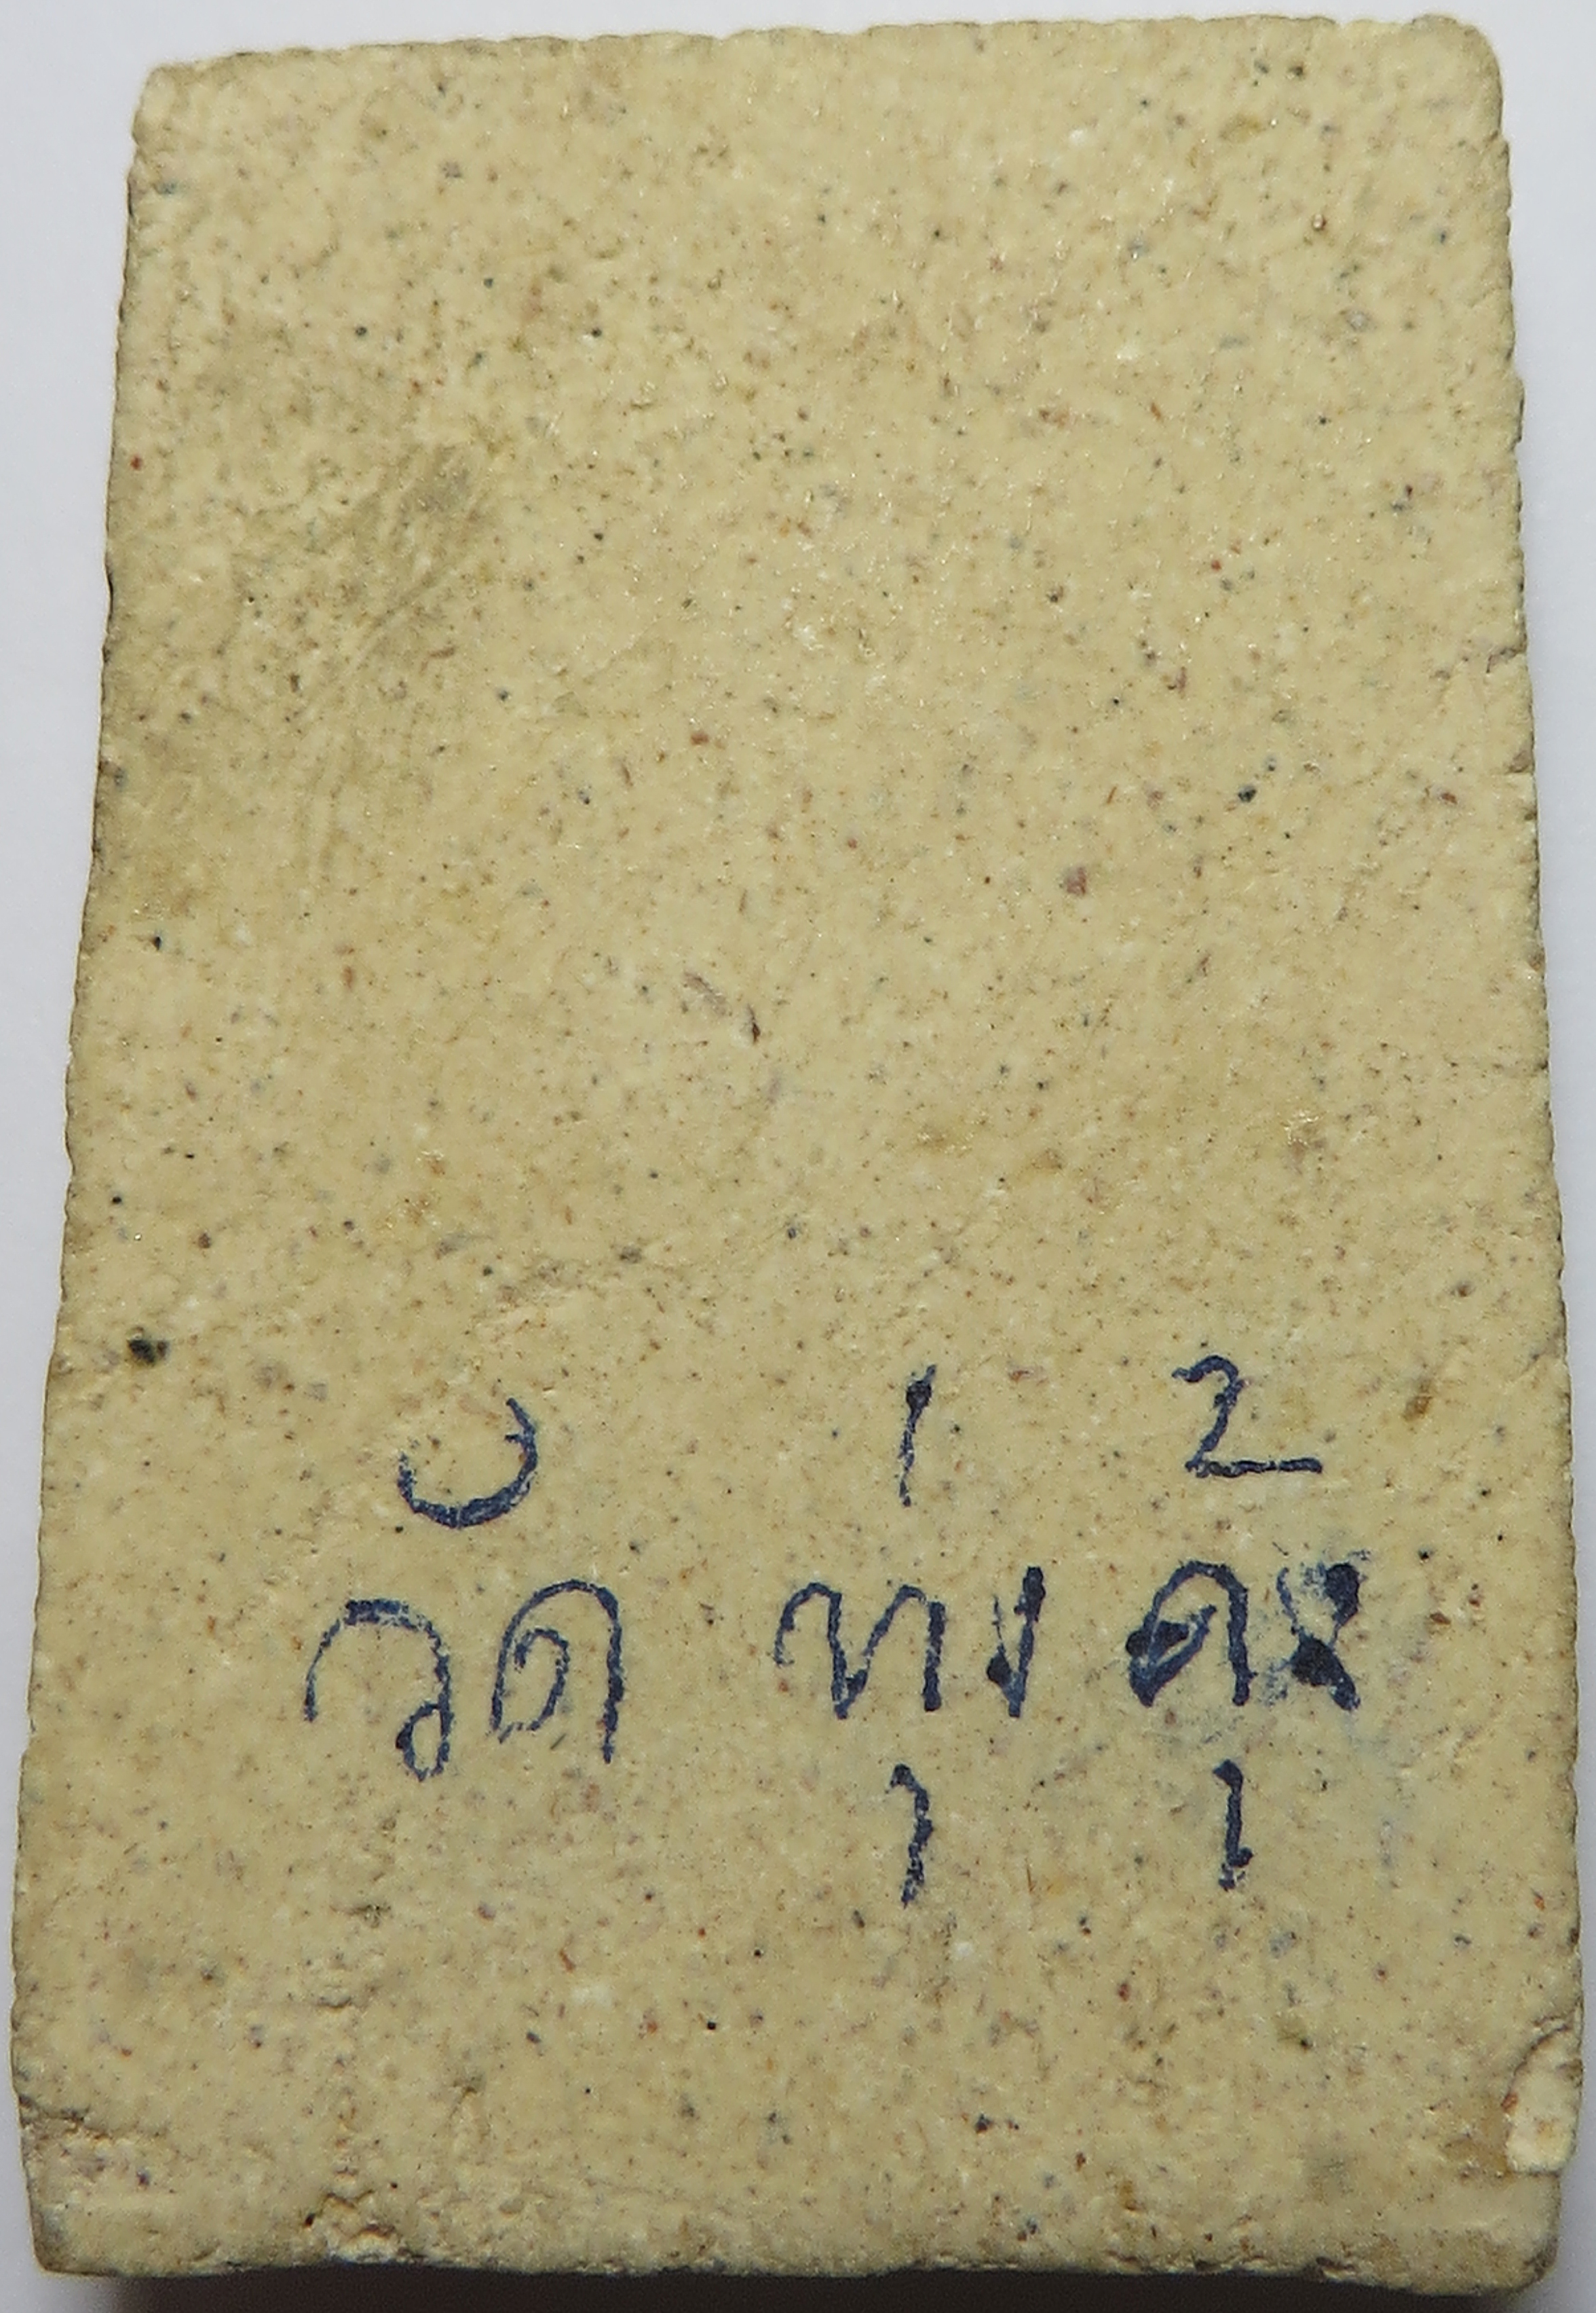 วัด ทุ่ง คุ้ง